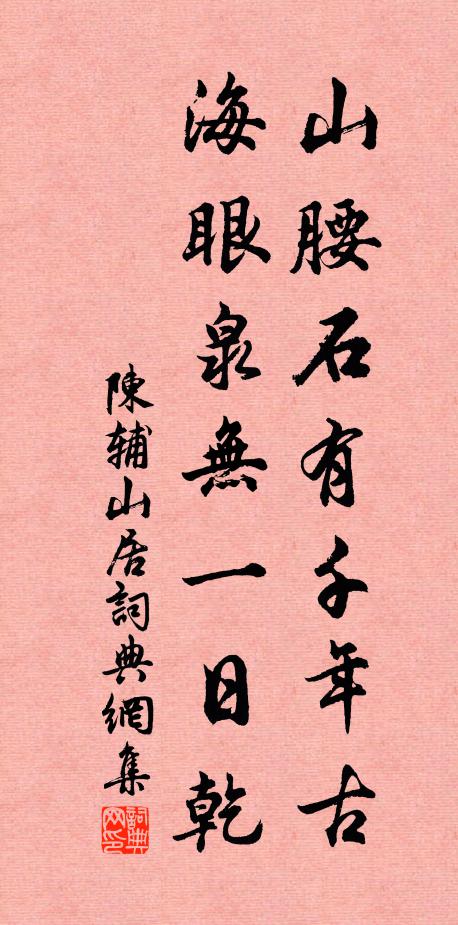 山腰石有千年古
海眼泉無一日乾
陳辅山居詞典網集
詞典网印